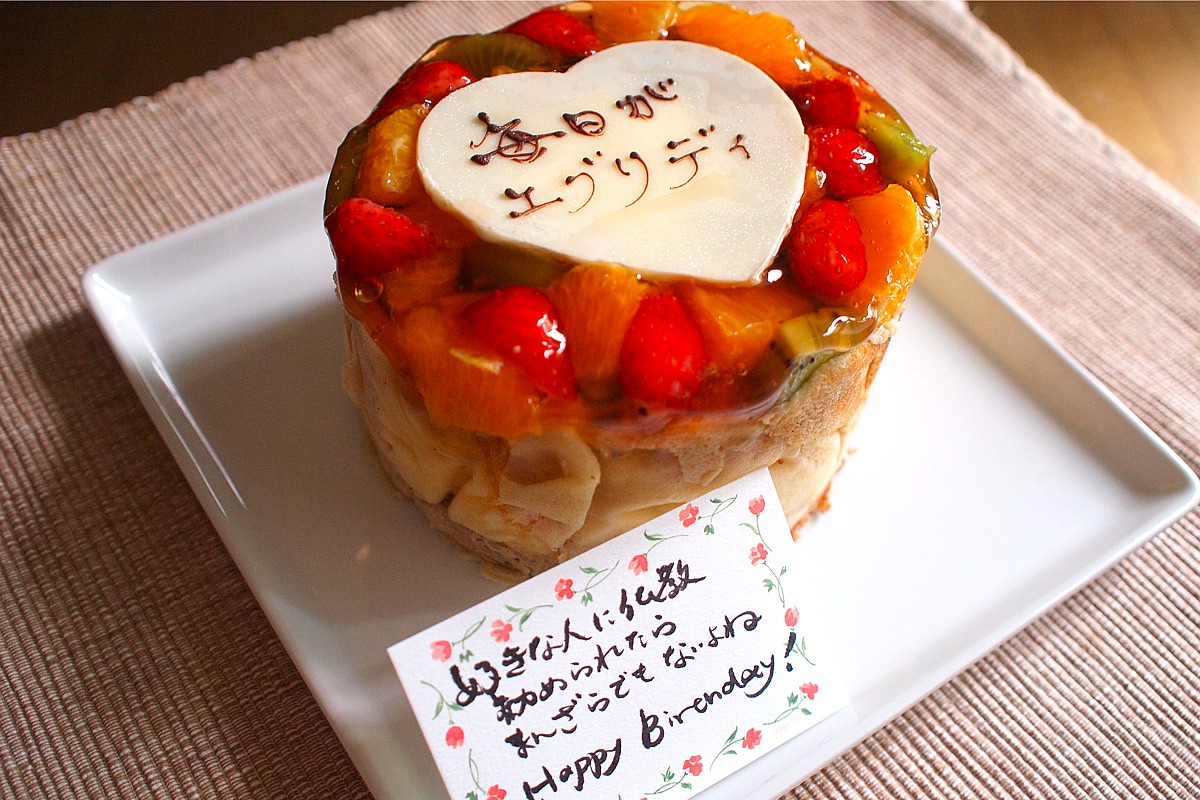 毎日が
エヴリディ
好きな人に仏教
勧められたら
まんざらでもないよね
Happy Birenday!